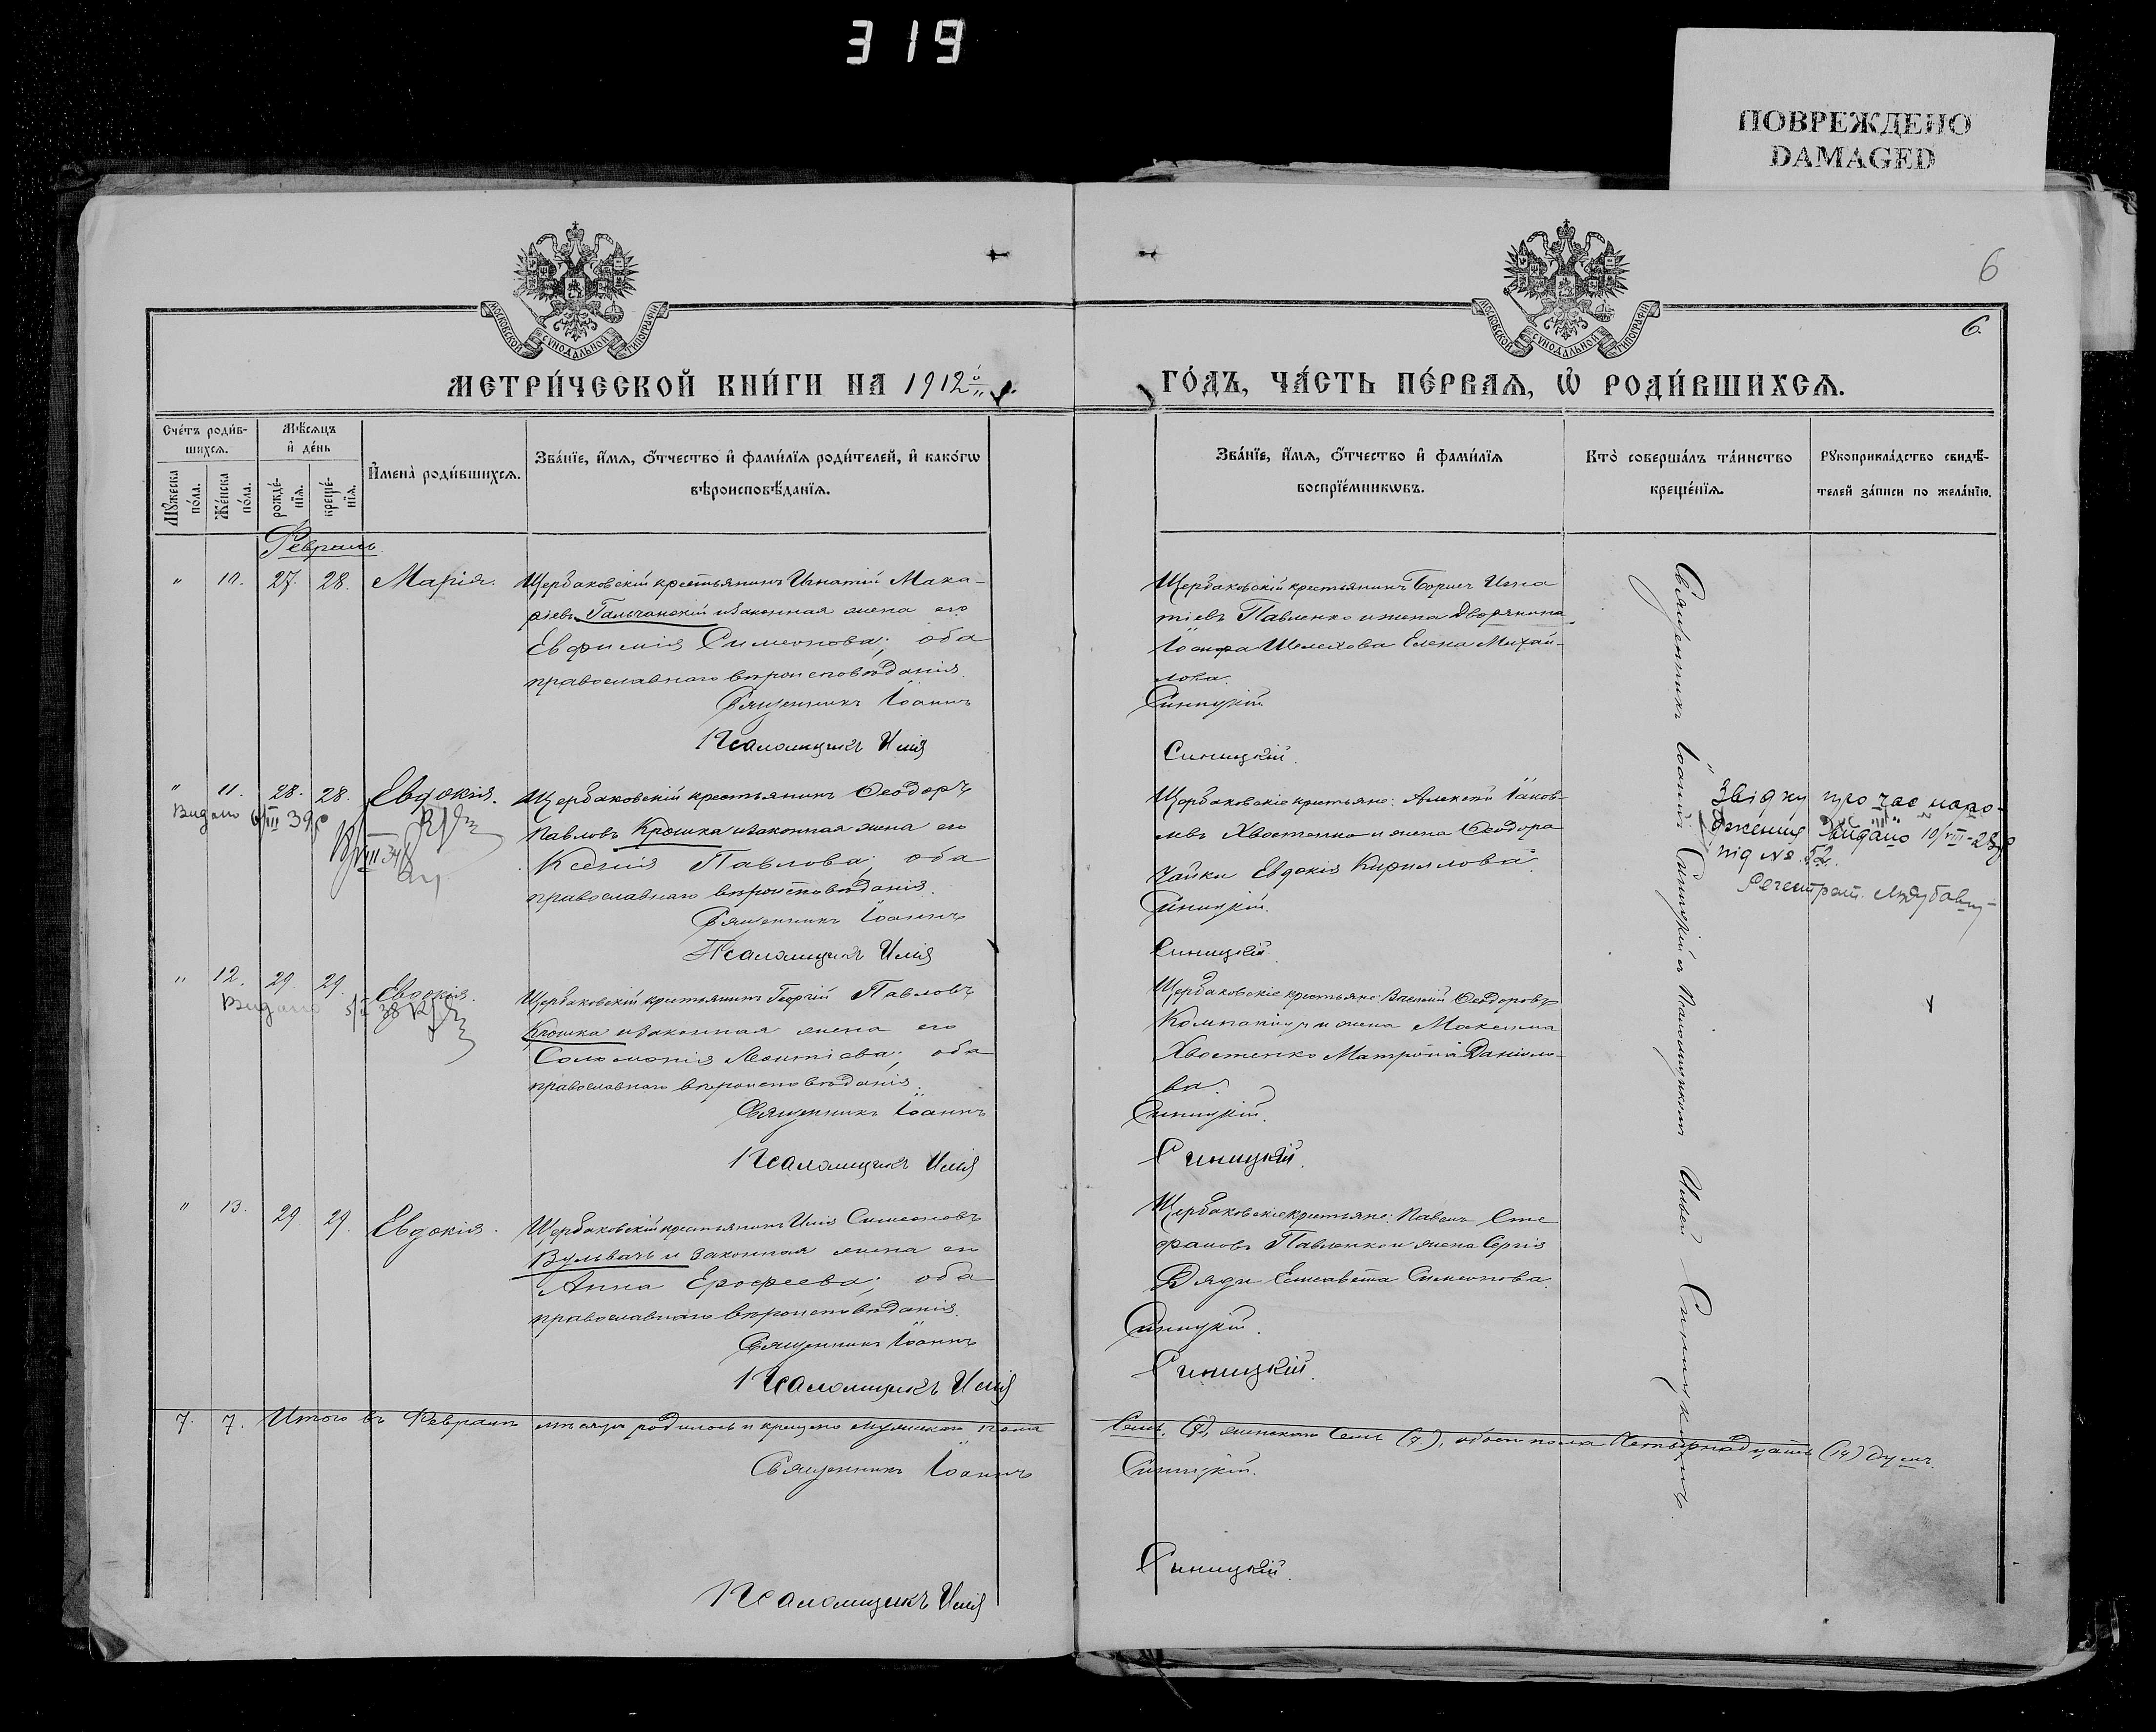 319
ПОВРЕЖДЕНО
DAMAGED
6
6.
МОСКОВСКОЙ СѴНОДАЛЬНОЙ ТИПОГРАФІИ
МОСКОВСКОЙ СѴНОДАЛЬНОЙ ТИПОГРАФІИ
МЕТРИ́ЧЕСКОЙ КНИ́ГИ НА 1912й
ГО́ДЪ, ЧА́СТЬ ПЕ́РВАЯ, Ѡ҆ РОДИ́ВШИХСѦ.
Сче́тъ роди́в-
шихсѧ.
Мꙋ́жеска по́ла.
Же́нска по́ла.
Мѣ́сѧцъ
и҆ де́нь
рожде́-
нїѧ.
креще́-
нїѧ.
И҆мена̀ роди́вшихсѧ.
Зва́нїе, и҆́мѧ, ѻ҆́тчество и҆ фами́лїѧ роди́телей, и҆ како́гѡ
вѣроисповѣ́данїѧ.
Зва́нїе, и҆́мѧ, ѻ҆́тчество и҆ фами́лїѧ
воспрїе́мникѡвъ.
Кто̀ соверша́лъ та́инство
креще́нїѧ.
Рꙋкоприкла́дство свидѣ́-
телей за́писи по жела́нїю.
Февраль.
" 10. 27. 28. Марія.
Щербаковскій крестьянинъ Игнатій Мака-
ріевъ Гальчанскій и законная жена его
Евфимія Симеонова; оба
православнаго вѣроисповѣданія.
Священникъ Іоаннъ
Псаломщикъ Илія
Щербаковскій крестьянинъ Борисъ Игна
тіевъ Павленко и жена Дворянина
Іосифа Шелехова Елена Михай-
лова.
Синицкій.
Синицкій.
" 11. 28. 28. Евдокія.
Видано 6/III 39р
VIII 34
Щербаковскій крестьянинъ Ѳеодоръ
Павловъ Крошка и законная жена его
Ксенія Павлова; оба
православнаго вѣроисповѣданія.
Священникъ Іоаннъ
Псаломщикъ Илія
Щербаковскіе крестьяне: Алексѣй Іаков-
левъ Хвостенко и жена Ѳеодора
Чайки Евдокія Кириллова.
Синицкій.
Синицкій.
Звідку про час наро-
дження видано 10/VIII-28р
під № 52.
" 12. 29. 29. Евдокія.
Видано
Щербаковскій крестьянинъ Георгій Павловъ
Крошка и законная жена его
Соломонія Леонтіева; оба
православнаго вѣроисповѣданія.
Священникъ Іоаннъ
Псаломщикъ Илія
Щербаковскіе крестьяне: Василій Ѳеодоровъ
Компаніецъ и жена Максима
Хвостенко Матрона Даніило-
ва.
Синицкій.
Синицкій.
" 13. 29 29. Евдокія.
Щербаковскій крестьянинъ Илія Симеоновъ
Вульвачъ и законная жена его
Анна Ерофеева; оба
православнаго вѣроисповѣданія.
Священникъ Іоаннъ
Псаломщикъ Илія
Щербаковскіе крестьяне: Павелъ Сте
фановъ Павленко и жена Сергія
Дяди Елисавета Симеонова.
Синицкій.
Синицкій.
Священникъ Іоаннъ Синицкій съ Псаломщикомъ Иліей Синицкимъ.
7. 7. Итого въ Февралѣ мѣсяцѣ родилось и крещено мужскаго пола
Семь (7), женскаго Семь (7.), обоего пола Четырнадцать (14) душъ.
Священникъ Іоаннъ
Синицкій.
Псаломщикъ Илія
Синицкій.